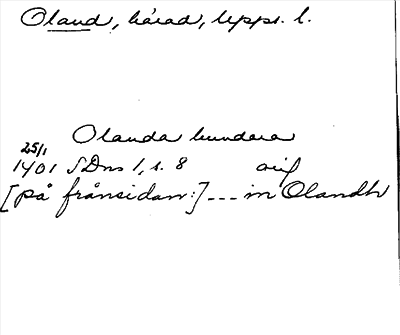 Oland, härad, Upps. l.
Olanda hundare
25/1
1401 SDns 1, s. 8 avs
[på frånsidan:] --- in Olandh